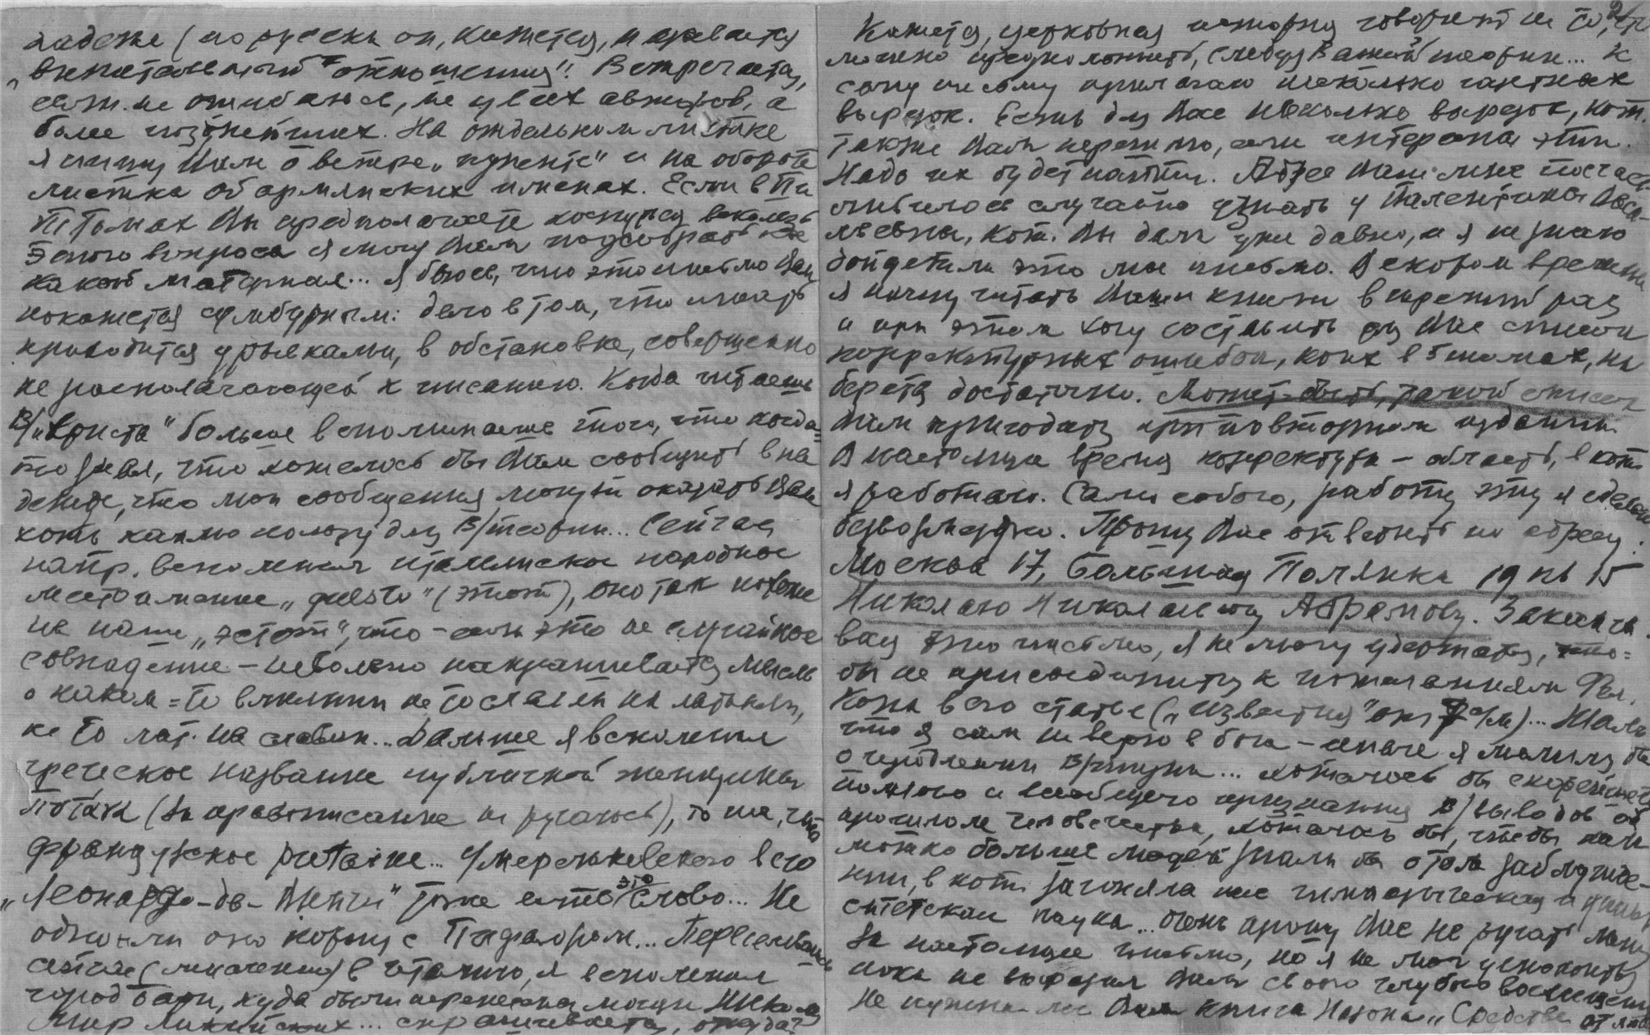 падеже (по русски он, кажется, называется
„винительный отношения“. Встречается,
если не ошибаюсь, не у всех авторов, а
более позднейших. На отдельном листике
я пишу Вам о ветре и на обороте
листка об армянских именах. Если в
томах Вы предполагаете коснуться
этого вопроса я могу Вам подобрать кое
какой материал... Я боюсь, что это письмо Вам
покажется сумбурным: дело в том, что писать
приходится урывками, в обстановке, совершенно
не располагающей к писанию. Когда читаешь
В/„Христа“ больше вспоминаешь того, что когда=
то знал, что хотелось бы Вам сообщить в на
дежде, что мои сообщения могут оказать Вам
хоть каплю пользы для В/теории... Сейчас
напр. вспомнил итальянское народное
местоимение „questo“ (этот), оно так похоже
на наше „эстот“, что – если это не случайное
совпадение – невольно напрашивается мысль
о каком=то влиянии не то славян на латынь,
не то лат. на славян... Дальше я вспомнил
греческое название публичной женщины
(за правописание не ручаюсь), то же, что
французское putaine... У Мережковского в его
„Леонардо-да-Винчи“ тоже есть это слово... Не
одного ли оно корня с Пифагором... Переселившись
сейчас (мысленно) в Италию, я вспомнил
город Бари, куда были перенесены мощи Николая
Мир Ликийских... спрашивается, откуда?
Кажется, церковная история говорит не то, что
можно предположить, следуя Вашей теории... К
сему письму прилагаю несколько газетных
вырезок. Есть для Вас несколько вырезок, кот.
также Вам перешлю, если интересны эти.
Надо их будет найти. Адрес Ваш мне посчаст
ливилось случайно узнать у Валентины Васи
льевны, кот. Вы дали уже давно, и я не знаю
дойдет ли это мое письмо. В скором времени
я начну читать Ваши книги в третий раз
и при этом хочу составить для Вас список
корректурных ошибок, коих в 5 томах, на
берется достаточно. Может быть, такой список
Вам пригодится при повторном издании.
В настоящее время корректура – область, в кот.
я работаю. Само собою, работу эту я сделаю
безвозмездно. Прошу Вас ответить по адресу:
Москва 17, Большая Полянка 19 кв 15
Николаю Николаевичу Абрамову. Заканчи
вая это письмо, я не могу удержаться, что=
бы не присоединиться к пожеланиям Фел.
Кона в его статье („Известия“ от ... с/м)... Жаль
что я сам не верю в бога – иначе я молился бы
о продлении В/жизни... хотелось бы скорейшего
полного и всеобщего признания В/выводов об
прошлом человечества, хотелось бы, чтобы как
можно больше людей знали бы о том заблужде-
нии, в кот. загоняла нас гимназическая и универ
ситетская наука... очень прошу Вас не ругать меня
за настоящее письмо, но я не мог успокоиться
пока не выразил Вам своего глубокого восхищения
Не нужна ли Вам книга „Средства от